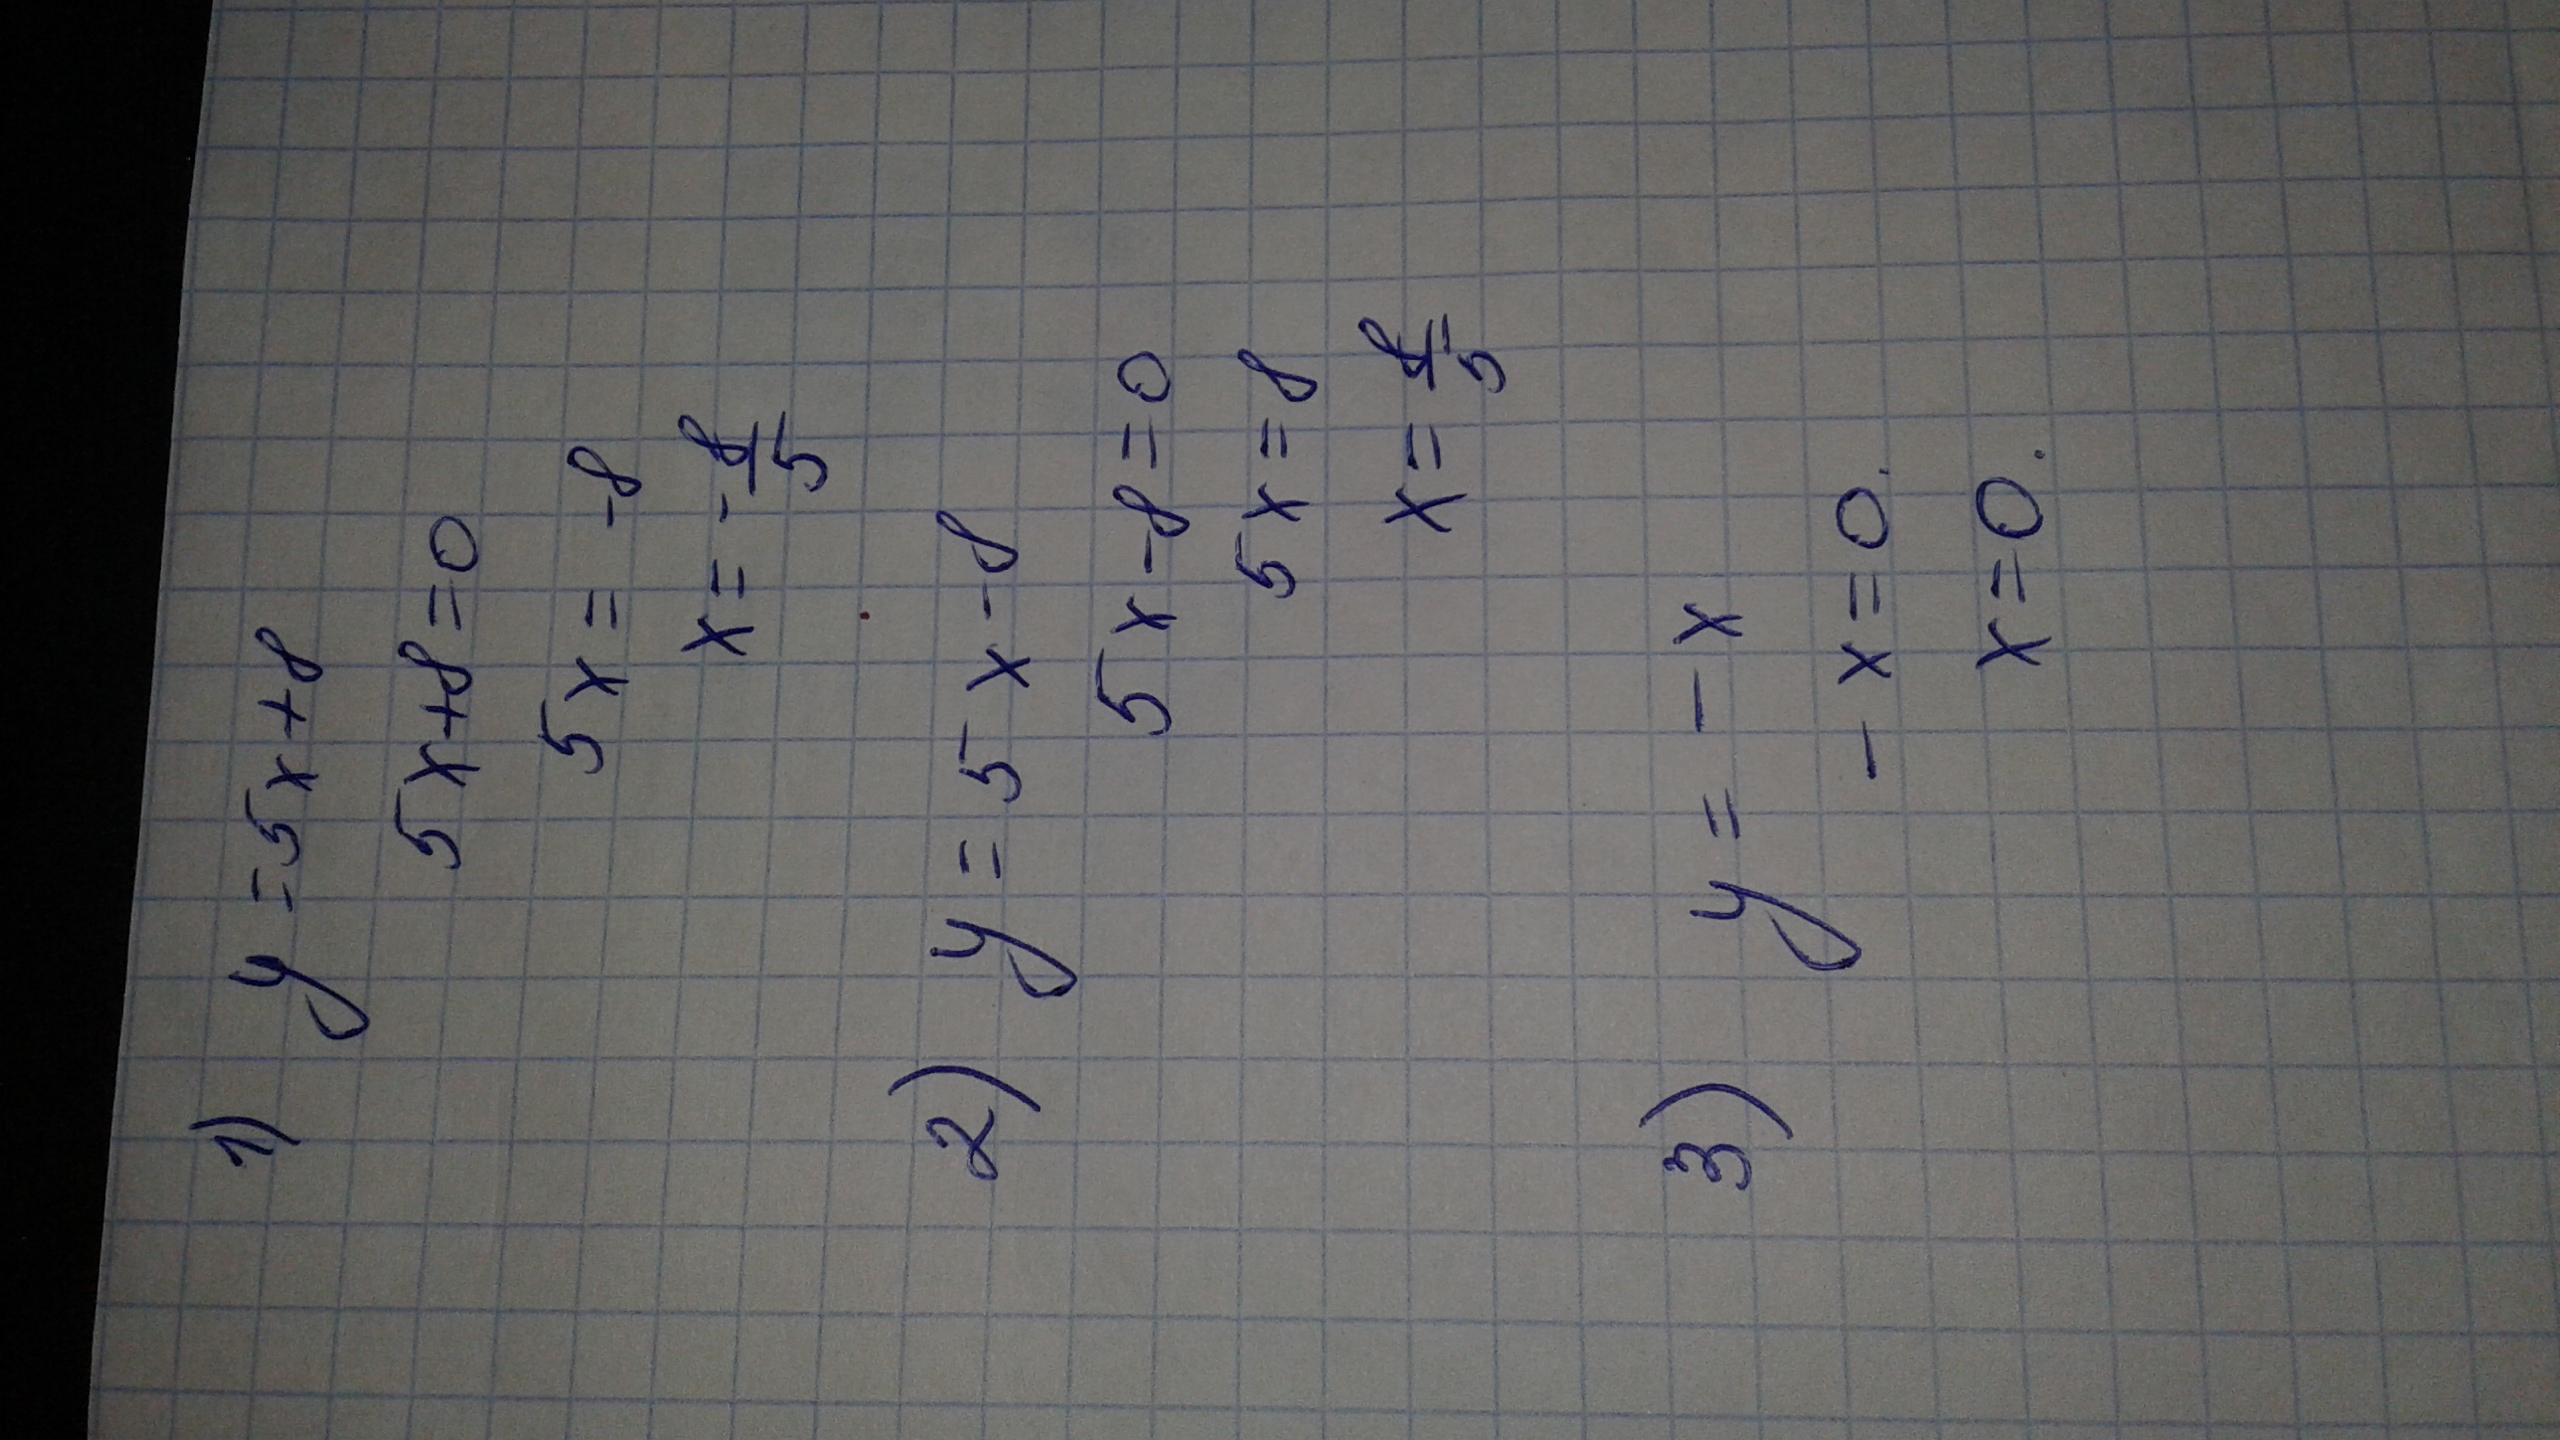 1) y = 5x+8
5x+8=0
5x = -8
x = -8/5
2) y = 5x-8
5x-8=0
5x=8
x=8/5
3) y = -x
-x=0.
x=0.